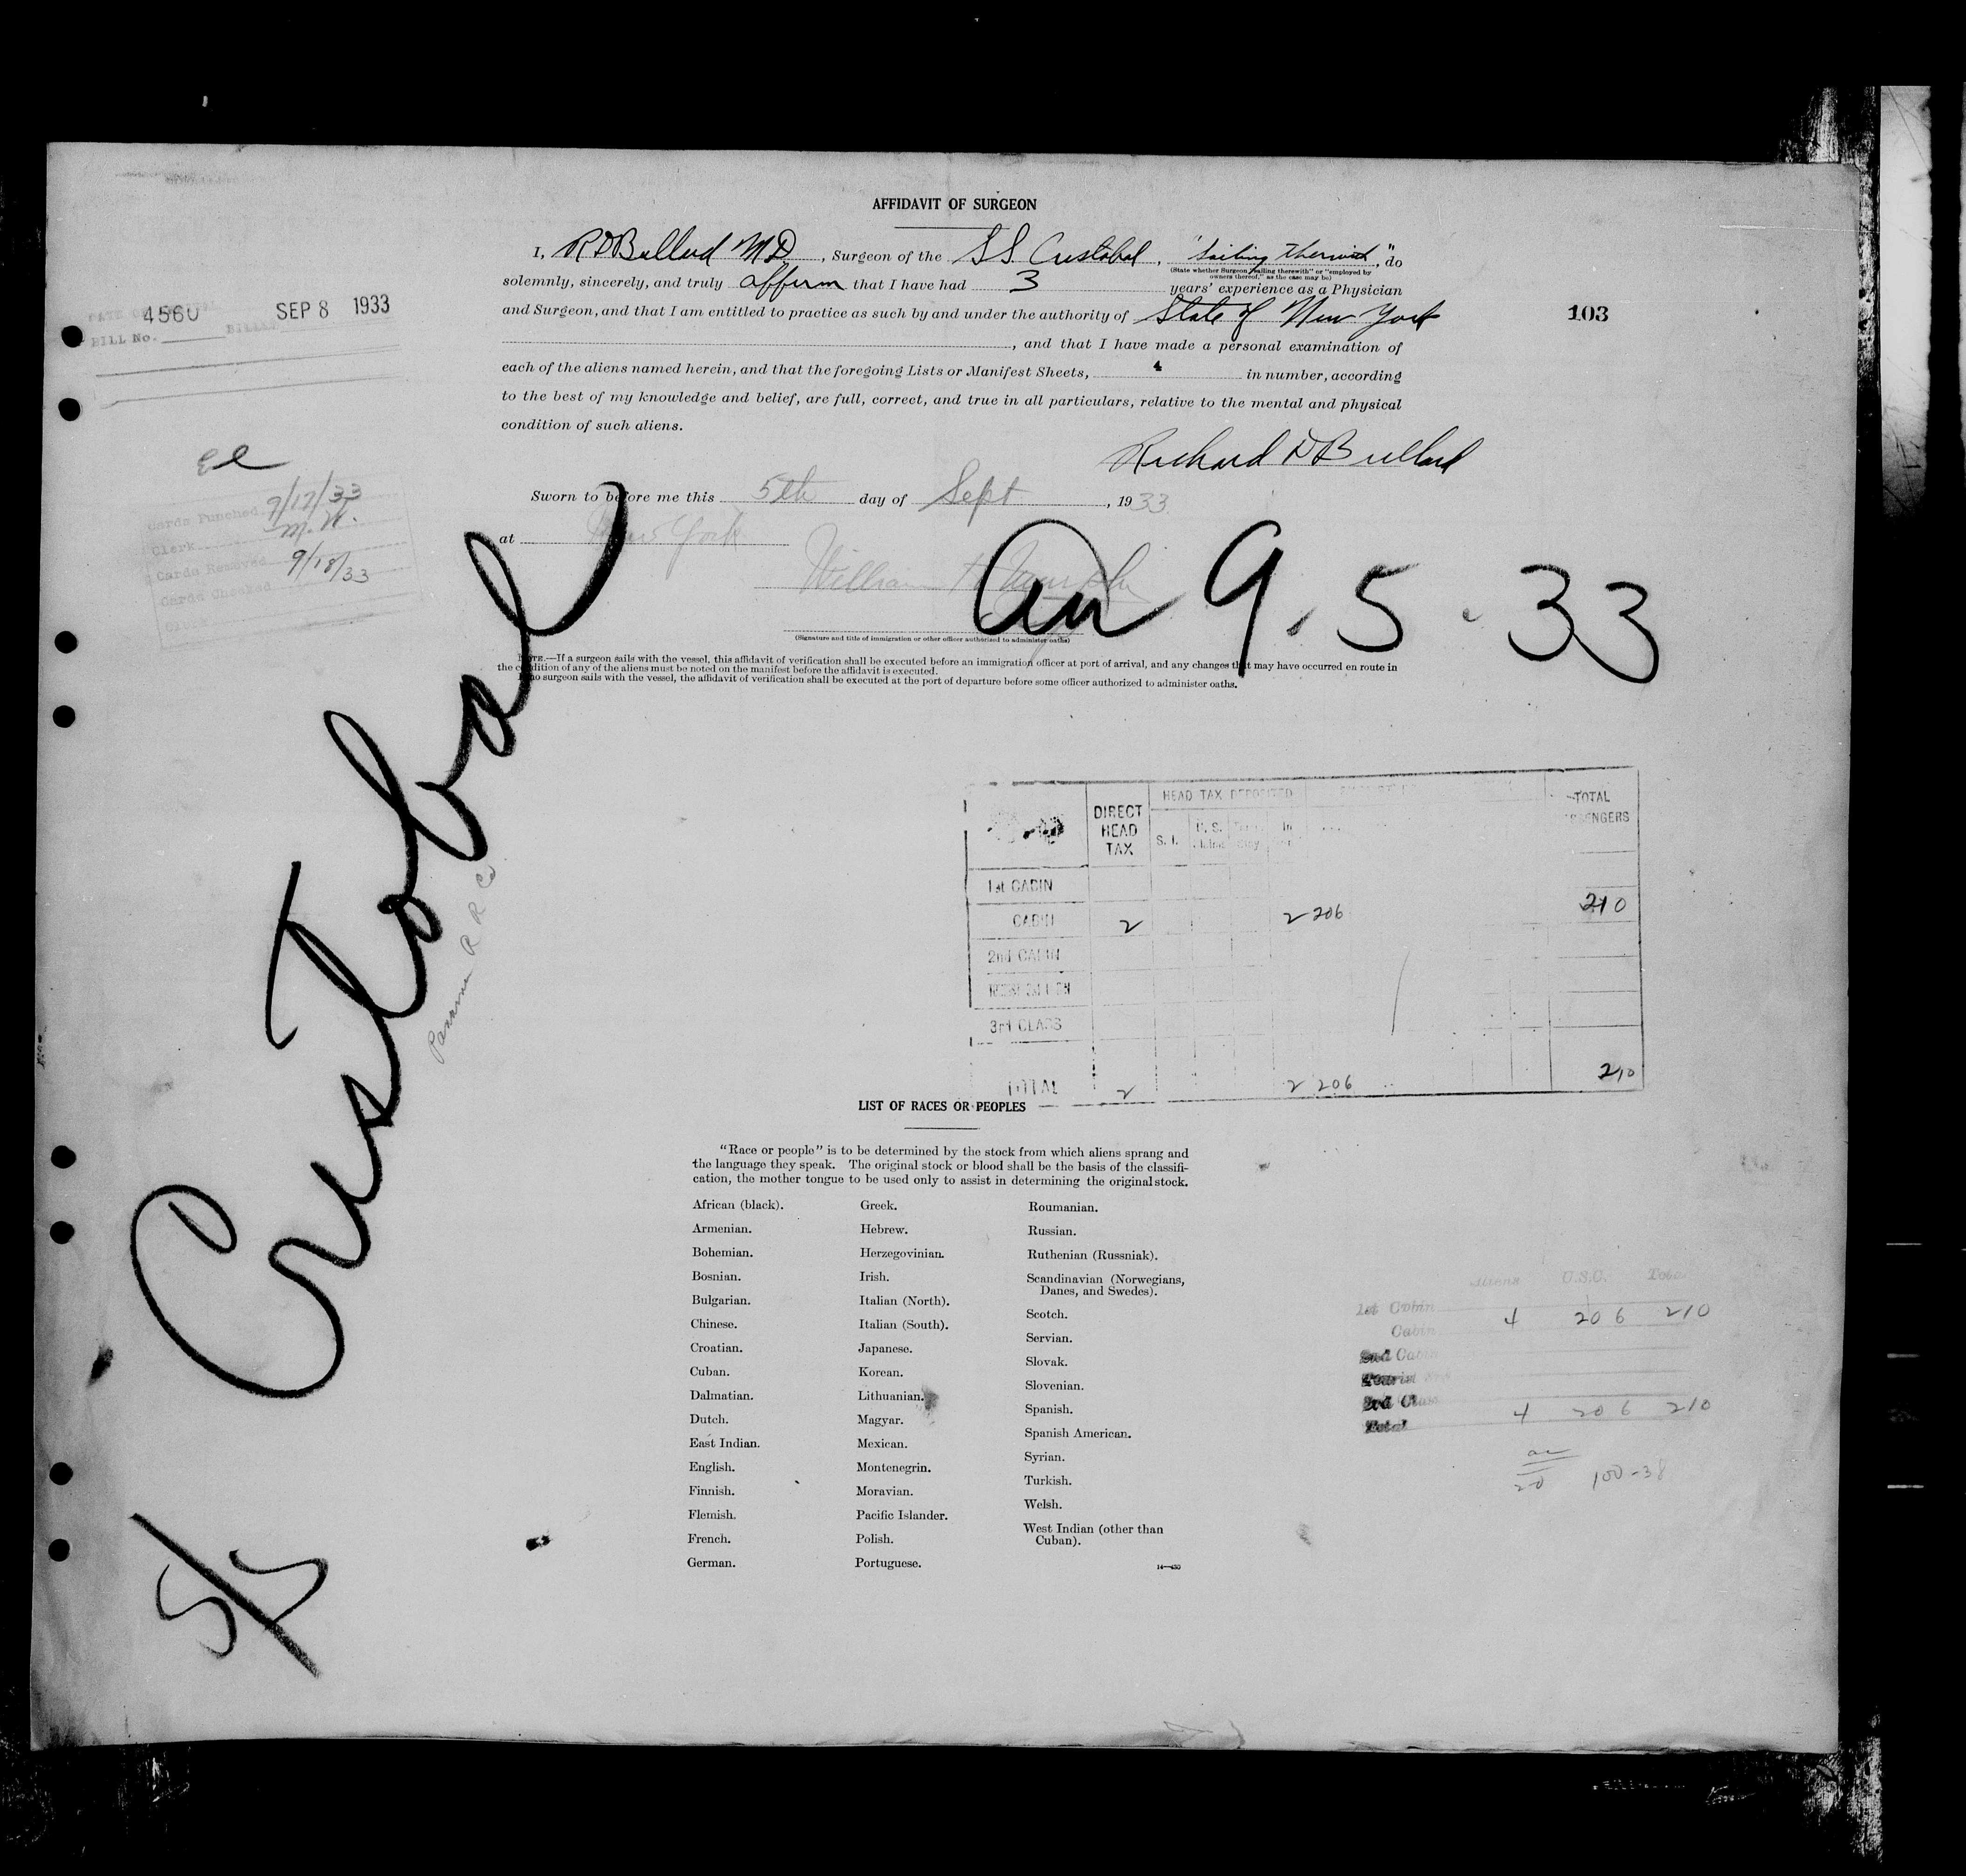 AFFIDAVIT OF SURGEON
I, R D Bullard M D, Surgeon of the S.S. Cristobal, "Sailing Therewith", do
(State whether Surgeon "sailing therewith" or "employed by
owners thereof," as the case may be)
solemnly, sincerely, and truly affirm that I have had 3 years' experience as a Physician
and Surgeon, and that I am entitled to practice as such by and under the authority of State of New York
, and that I have made a personal examination of
each of the aliens named herein, and that the foregoing Lists or Manifest Sheets, 4 in number, according
to the best of my knowledge and belief, are full, correct, and true in all particulars, relative to the mental and physical
condition of such aliens.
Richard D Bullard
Sworn to before me this 5th day of Sept, 1933
at New York
William H Murphy
(Signature and title of immigration or other officer authorized to administer oaths)
NOTE.—If a surgeon sails with the vessel, this affidavit of verification shall be executed before an immigration officer at port of arrival, and any changes that may have occurred en route in
the condition of any of the aliens must be noted on the manifest before the affidavit is executed.
If no surgeon sails with the vessel, the affidavit of verification shall be executed at the port of departure before some officer authorized to administer oaths.
103
4560 SEP 8 1933
BILL No.
Cards Punched 9/17/33
Clerk M.W.
Cards Removed 9/18/33
Cards Checked
An 9.5.33
Cristobal
Panama R R Co
S/S
DIRECT HEAD TAX
HEAD TAX DEPOSITED
TOTAL PASSENGERS
S. I.
1st CABIN
CABIN 2 2 206 210
2nd CABIN
3rd CLASS
TOTAL 2 2 206 210
LIST OF RACES OR PEOPLES
"Race or people" is to be determined by the stock from which aliens sprang and
the language they speak. The original stock or blood shall be the basis of the classifi-
cation, the mother tongue to be used only to assist in determining the original stock.
African (black).
Armenian.
Bohemian.
Bosnian.
Bulgarian.
Chinese.
Croatian.
Cuban.
Dalmatian.
Dutch.
East Indian.
English.
Finnish.
Flemish.
French.
German.
Greek.
Hebrew.
Herzegovinian.
Irish.
Italian (North).
Italian (South).
Japanese.
Korean.
Lithuanian.
Magyar.
Mexican.
Montenegrin.
Moravian.
Pacific Islander.
Polish.
Portuguese.
Roumanian.
Russian.
Ruthenian (Russniak).
Scandinavian (Norwegians,
Danes, and Swedes).
Scotch.
Servian.
Slovak.
Slovenian.
Spanish.
Spanish American.
Syrian.
Turkish.
Welsh.
West Indian (other than
Cuban).
14—430
Aliens U.S.C. Total
1st Cabin
Cabin 4 206 210
2nd Cabin
Tourist
3rd Class
Total 4 206 210
20 100-38